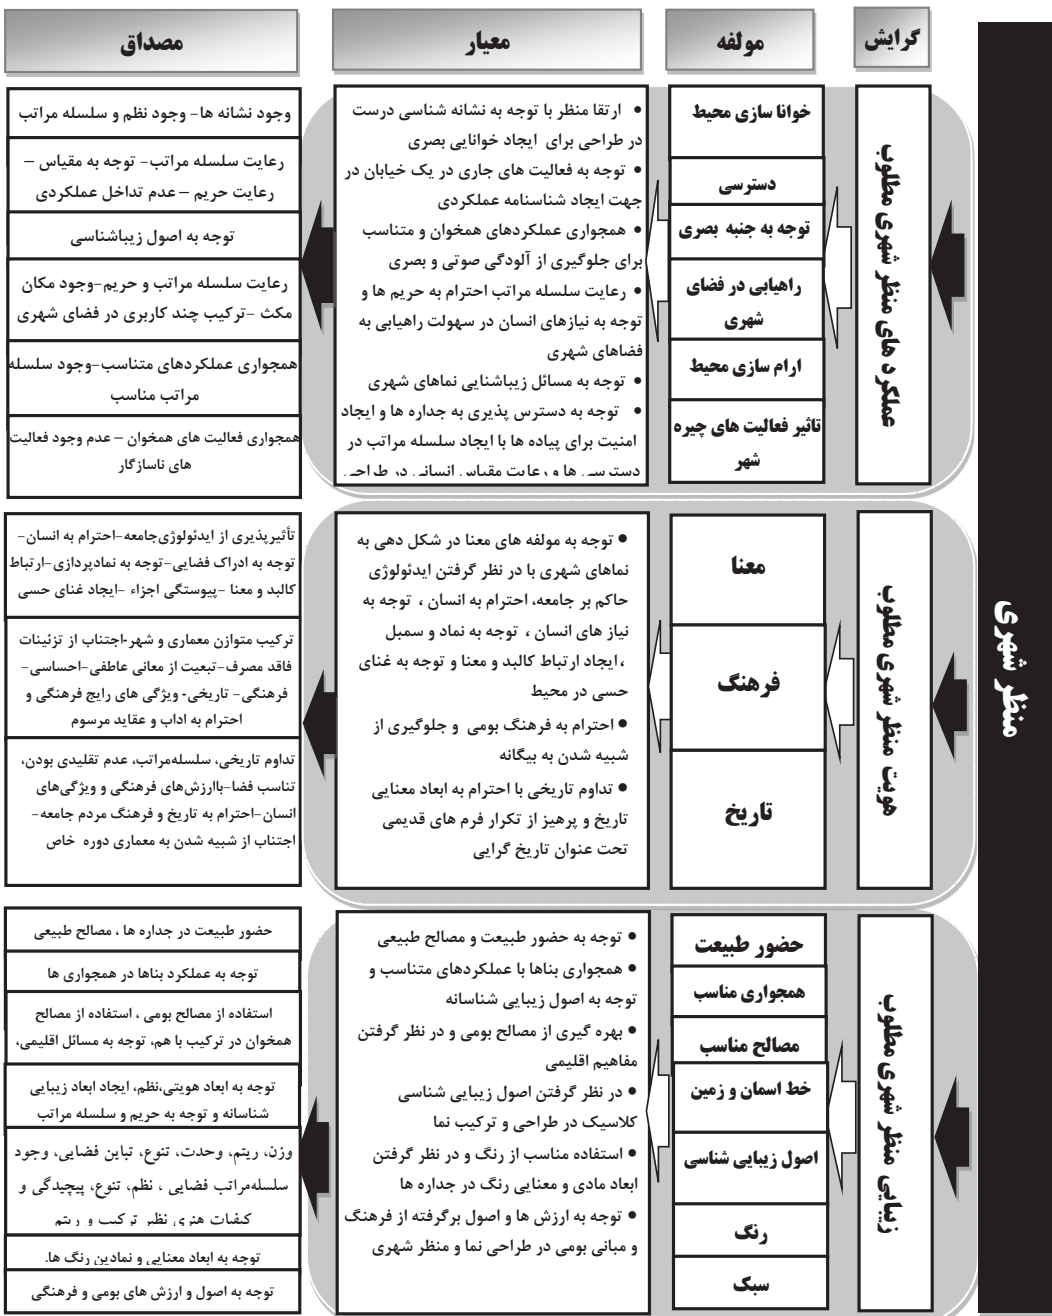 گرایش
مولفه
معیار
مصداق
منظر شهری
عملکرد های منظر شهری مطلوب
خوانا سازی محیط
دسترسی
توجه به جنبه بصری
راهیابی در فضای
شهری
ارام سازی محیط
تاثیر فعالیت های چیره
شهر
• ارتقا منظر با توجه به نشانه شناسی درست
در طراحی برای ایجاد خوانایی بصری
• توجه به فعالیت های جاری در یک خیابان در
جهت ایجاد شناسنامه عملکردی
• همجواری عملکردهای همخوان و متناسب
برای جلوگیری از آلودگی صوتی و بصری
• رعایت سلسله مراتب احترام به حریم ها و
توجه به نیازهای انسان در سهولت راهیابی به
فضاهای شهری
• توجه به مسائل زیباشنایی نماهای شهری
• توجه به دسترس پذیری به جداره ها و ایجاد
امنیت برای پیاده ها با ایجاد سلسله مراتب در
دسترسی ها و رعایت مقیاس انسانی در طراحی
وجود نشانه ها- وجود نظم و سلسله مراتب
رعایت سلسله مراتب- توجه به مقیاس –
رعایت حریم – عدم تداخل عملکردی
توجه به اصول زیباشناسی
رعایت سلسله مراتب و حریم-وجود مکان
مکث -ترکیب چند کاربری در فضای شهری
همجواری عملکردهای متناسب-وجود سلسله
مراتب مناسب
همجواری فعالیت های همخوان – عدم وجود فعالیت
های ناسازگار
هویت منظر شهری مطلوب
معنا
فرهنگ
تاریخ
• توجه به مولفه های معنا در شکل دهی به
نماهای شهری با در نظر گرفتن ایدئولوژی
حاکم بر جامعه، احترام به انسان ، توجه به
نیاز های انسان ، توجه به نماد و سمبل
، ایجاد ارتباط کالبد و معنا و توجه به غنای
حسی در محیط
• احترام به فرهنگ بومی و جلوگیری از
شبیه شدن به بیگانه
• تداوم تاریخی با احترام به ابعاد معنایی
تاریخ و پرهیز از تکرار فرم های قدیمی
تحت عنوان تاریخ گرایی
تأثیرپذیری از ایدئولوژی‌جامعه-احترام به انسان-
توجه به ادراک فضایی-توجه به نمادپردازی-ارتباط
کالبد و معنا -پیوستگی اجزاء -ایجاد غنای حسی
ترکیب متوازن معماری و شهر-اجتناب از تزئینات
فاقد مصرف-تبعیت از معانی عاطفی-احساسی-
فرهنگی- تاریخی- ویژگی های رایج فرهنگی و
احترام به اداب و عقاید مرسوم
تداوم تاریخی، سلسله‌مراتب، عدم تقلیدی بودن،
تناسب فضا-باارزش‌های فرهنگی و ویژگی‌های
انسان-احترام به تاریخ و فرهنگ مردم جامعه-
اجتناب از شبیه شدن به معماری دوره خاص
زیبایی منظر شهری مطلوب
حضور طبیعت
همجواری مناسب
مصالح مناسب
خط اسمان و زمین
اصول زیبایی شناسی
رنگ
سبک
• توجه به حضور طبیعت و مصالح طبیعی
• همجواری بناها با عملکردهای متناسب و
توجه به اصول زیبایی شناسانه
• بهره گیری از مصالح بومی و در نظر گرفتن
مفاهیم اقلیمی
• در نظر گرفتن اصول زیبایی شناسی
کلاسیک در طراحی و ترکیب نما
• استفاده مناسب از رنگ و در نظر گرفتن
ابعاد مادی و معنایی رنگ در جداره ها
• توجه به ارزش ها و اصول برگرفته از فرهنگ
و مبانی بومی در طراحی نما و منظر شهری
حضور طبیعت در جداره ها ، مصالح طبیعی
توجه به عملکرد بناها در همجواری ها
استفاده از مصالح بومی ، استفاده از مصالح
همخوان در ترکیب با هم، توجه به مسائل اقلیمی،
توجه به ابعاد هویتی،نظم، ایجاد ابعاد زیبایی
شناسانه و توجه به حریم و سلسله مراتب
وزن، ریتم، وحدت، تنوع، تباین فضایی، وجود
سلسله‌مراتب فضایی ، نظم، تنوع، پیچیدگی و
کیفیات هنری نظیر ترکیب و ریتم
توجه به ابعاد معنایی و نمادین رنگ ها.
توجه به اصول و ارزش های بومی و فرهنگی